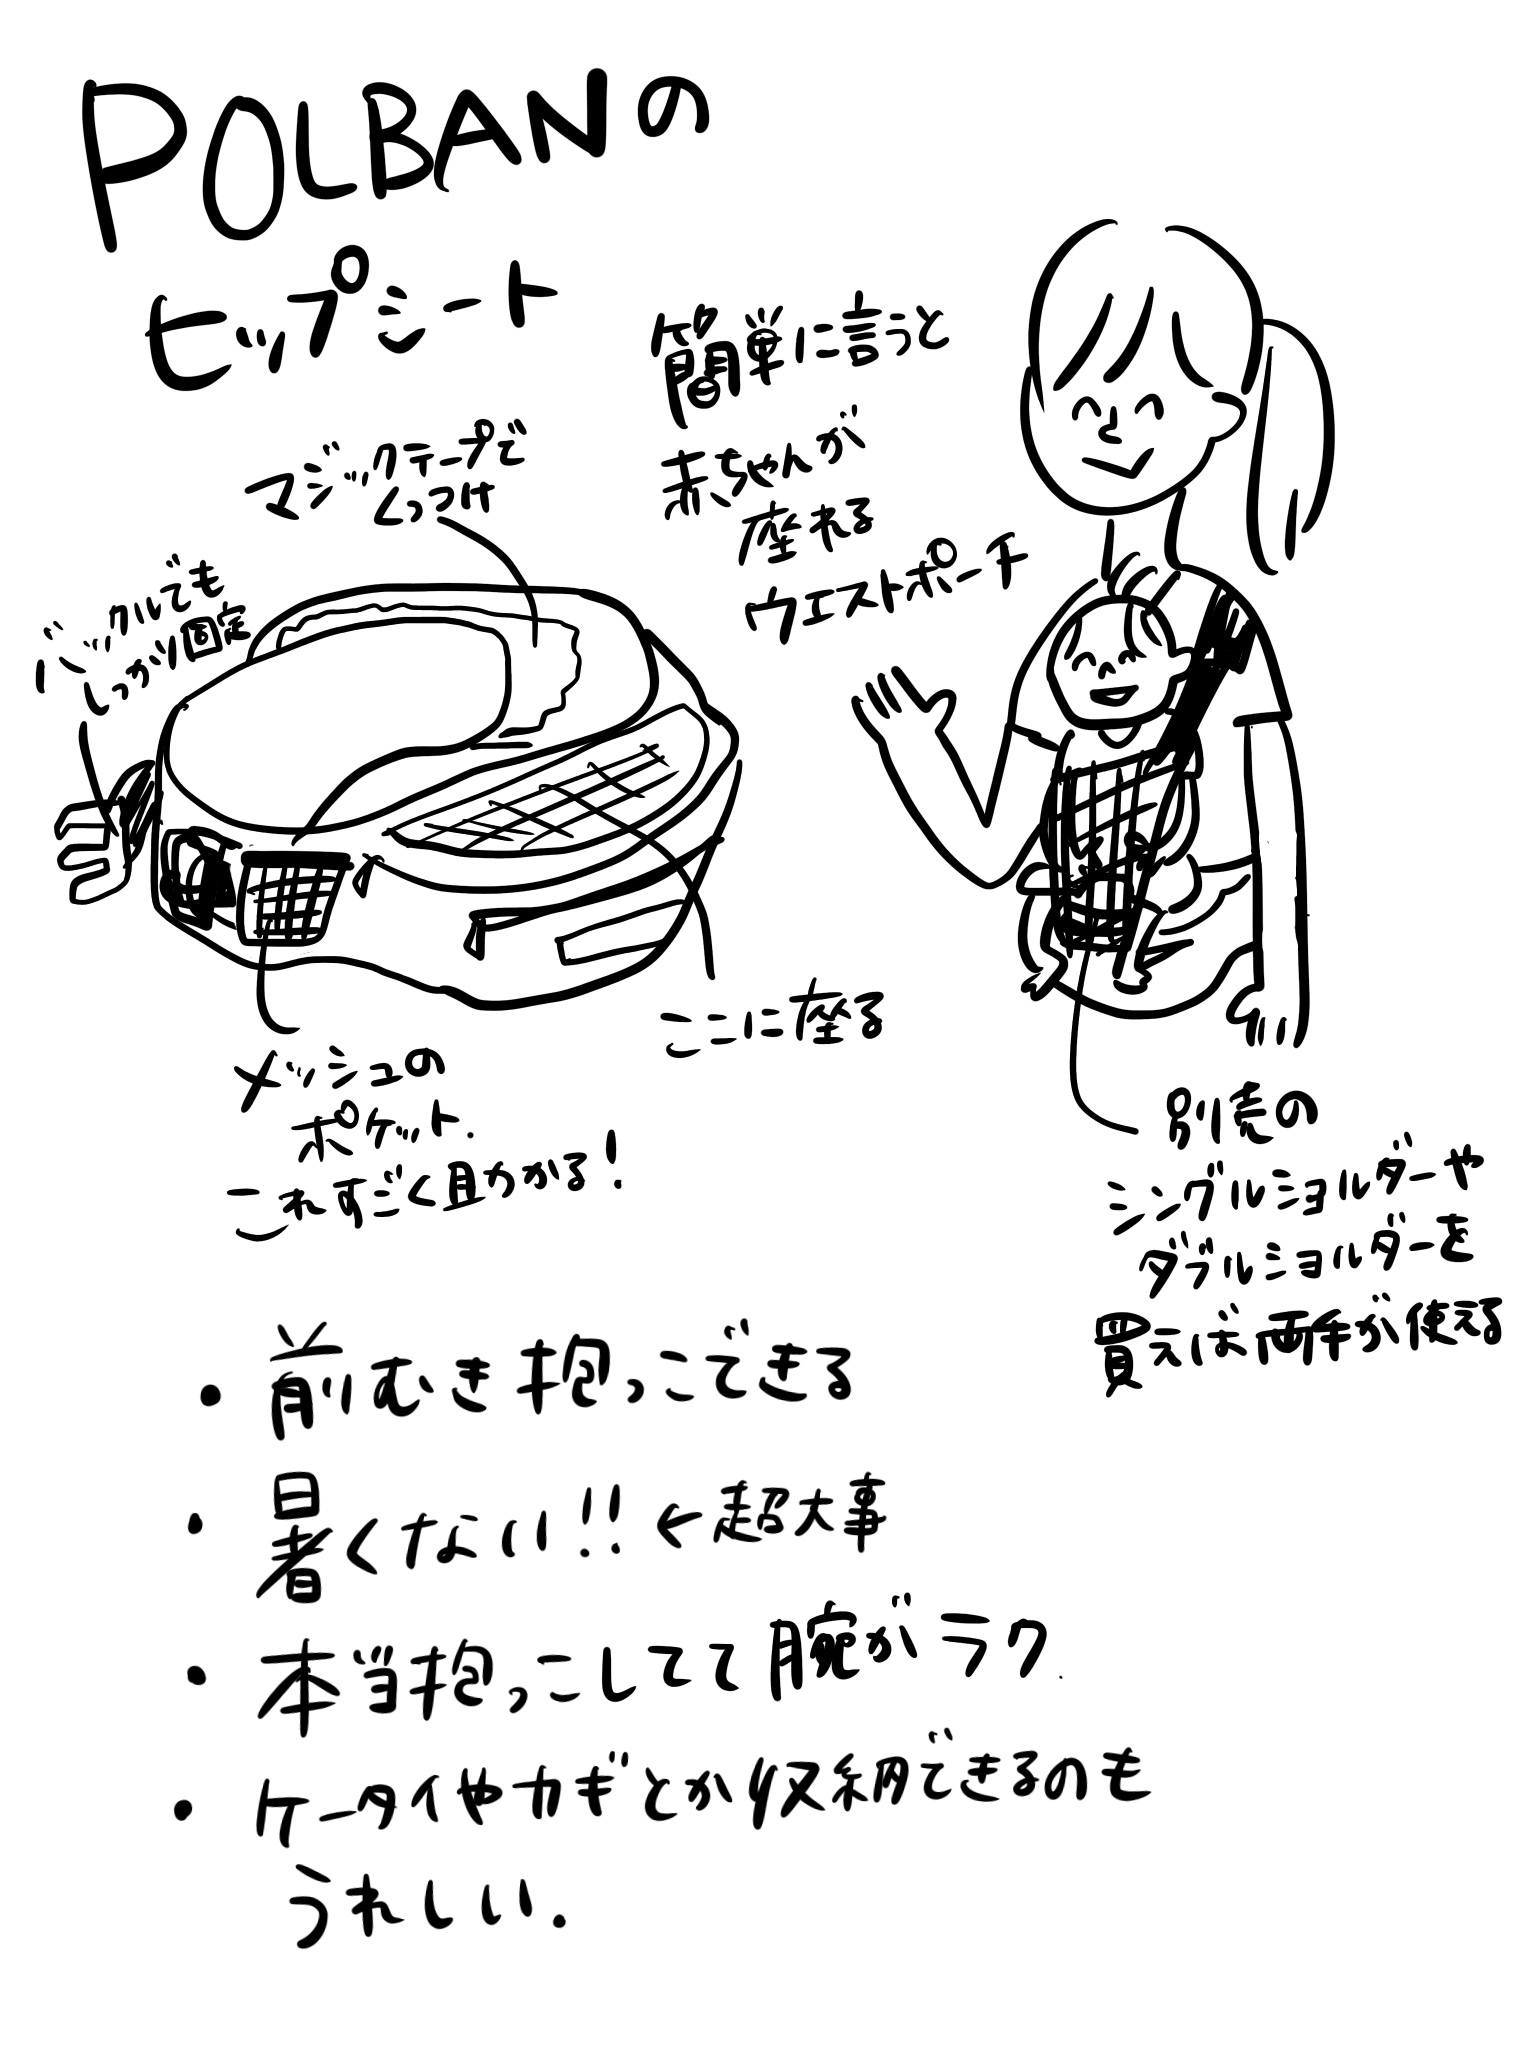 POLBANの
ヒップシート
簡単に言うと
赤ちゃんが
座れる
ウエストポーチ
マジックテープで
くっつけ
バックルでも
しっかり固定
ここに座る
メッシュの
ポケット.
これすごく助かる!
別売の
シングルショルダーや
ダブルショルダーを
買えば両手が使える
・前むき抱っこできる
・暑くない!!←超大事
・本当抱っこしてて腕がラク
・ケータイやカギとか収納できるのも
うれしい.